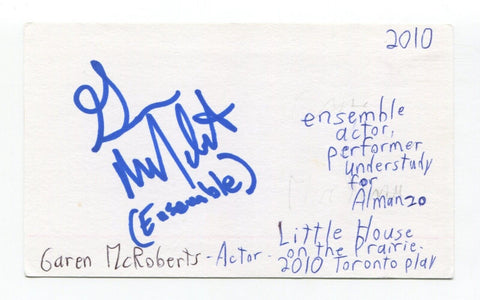 2010
G
McRobert
(Ensemble)
ensemble
actor,
performer
understudy
for
Almanzo
Little House
on the Prairie.
2010 Toronto play
Garen McRoberts - Actor -